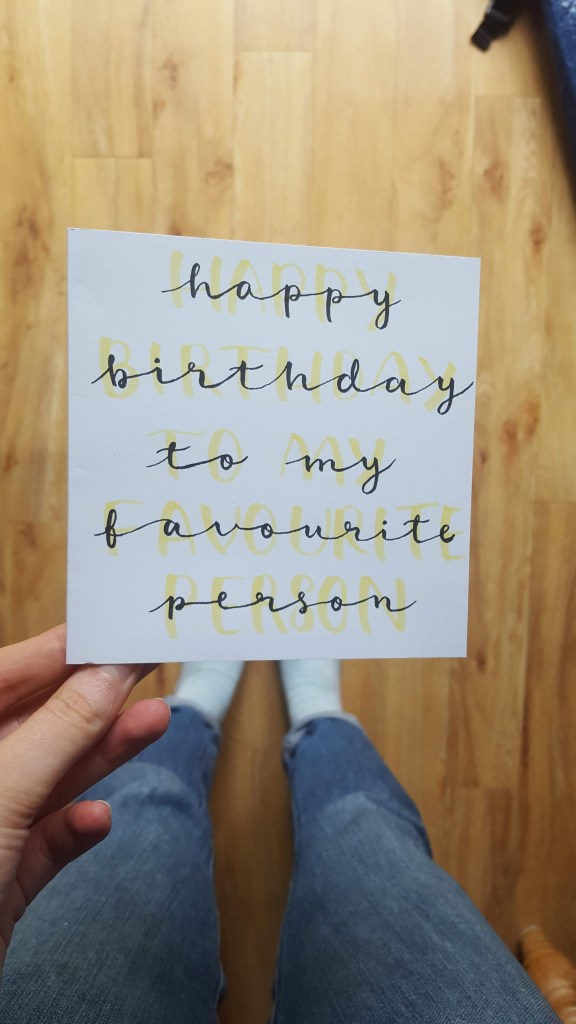 HAPPY
happy
BIRTHDAY
birthday
TO MY
to my
FAVOURITE
favourite
PERSON
person